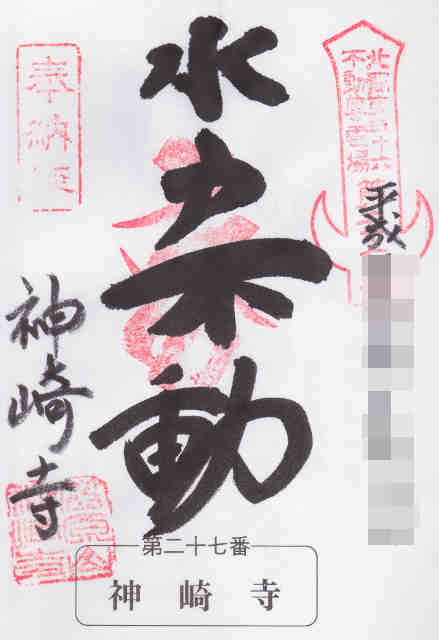 北國三十六
不動尊霊場
平成
水
不動
奉納経
神崎寺
第二十七番
神崎寺